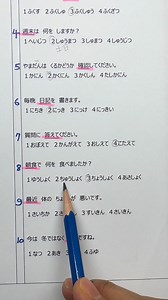 1 ふくす　2 ふくしゅ　3 ふくしゅう　4 ふくざつ
4 週末は 何を しますか？
1 へいじつ　2 しゅうまつ　3 しゅまつ　4 しゅうまい
5 やまだんは くるかどうか 確認してください。
1 かにん　2 かくにん　3 かくん　4 たしかにん
6 毎晩 日記を 書きます。
1 にちき　2 にっき　3 にっけ　4 にっけい
7 質問に 答えてください。
1 おぼえて　2 かんがえて　3 おしえて　4 こたえて
8 朝食で 何を 食べましたか？
1 ゆうしょく　2 ちゅうしょく　3 ちょうしょく　4 あさしょく
9 最近 体の ちょ が 悪いです。
1 さいちか　2 さ ん　3 すいきん　4 さいきん
10 今は 冬では ですね。
1 なつ　2 あき　3 　4 ふゆ